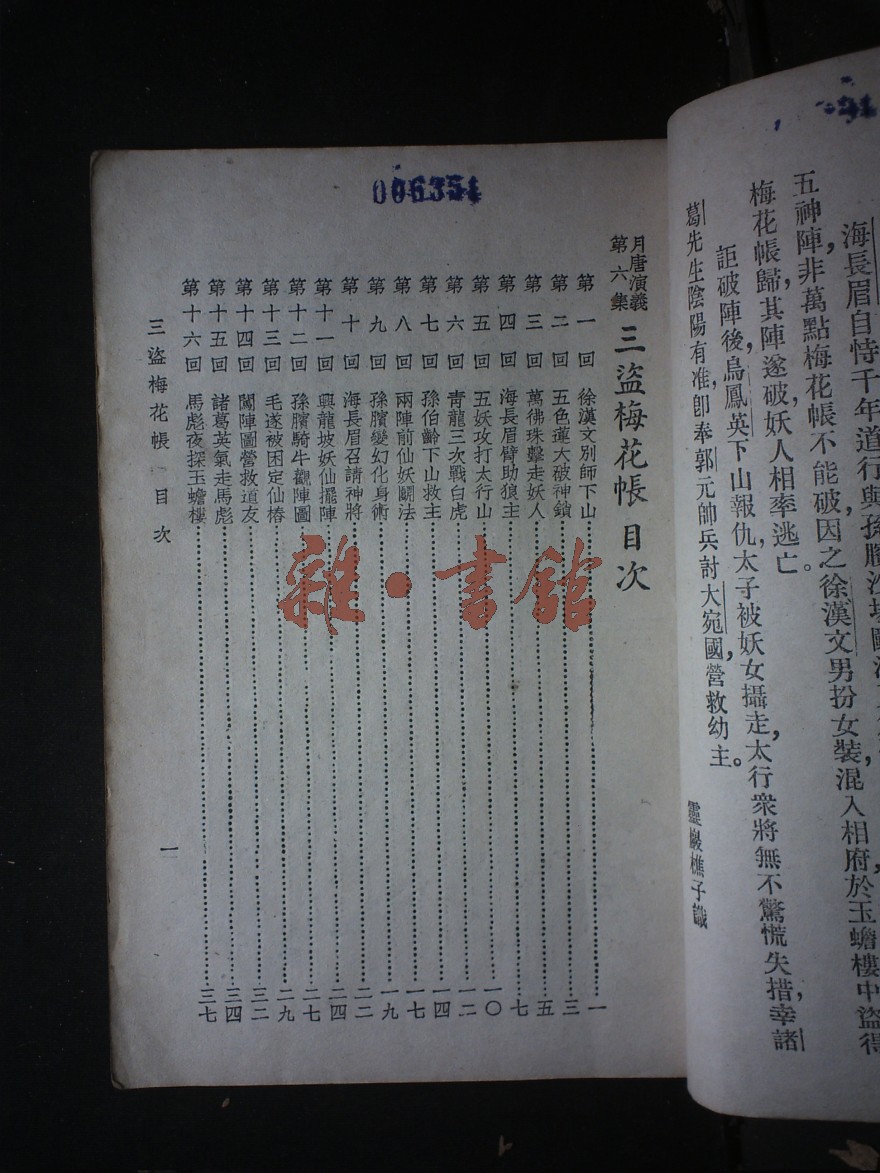 海長眉自恃千年道行與孫臏沙場鬬法
五神陣，非萬點梅花帳不能破因之徐漢文男扮女裝，混入相府於玉蟾樓中盜得
梅花帳歸，其陣遂破，妖人相率逃亡。
詎破陣後，烏鳳英下山報仇，太子被妖女攝走，太行衆將無不驚慌失措，幸諸
葛先生陰陽有准，卽奉郭元帥兵討大宛國，營救幼主。
靈巖樵子識
006354
月唐演義
第六集
三盜梅花帳 目次
第一回 徐漢文別師下山 一
第二回 五色蓮大破神鎖 三
第三回 萬彿珠擊走妖人 五
第四回 海長眉臂助狼主 七
第五回 五妖攻打太行山 一〇
第六回 青龍三次戰白虎 一二
第七回 孫伯齡下山救主 一四
第八回 兩陣前仙妖鬬法 一七
第九回 孫臏變幻化身術 一九
第十回 海長眉召請神將 二二
第十一回 興龍坡妖仙擺陣 二四
第十二回 孫臏騎牛觀陣圖 二七
第十三回 毛遂被困定仙樁 二九
第十四回 闖陣圖營救道友 三二
第十五回 諸葛英氣走馬彪 三四
第十六回 馬彪夜探玉蟾樓 三七
三盜梅花帳 目次
一
雜·書館